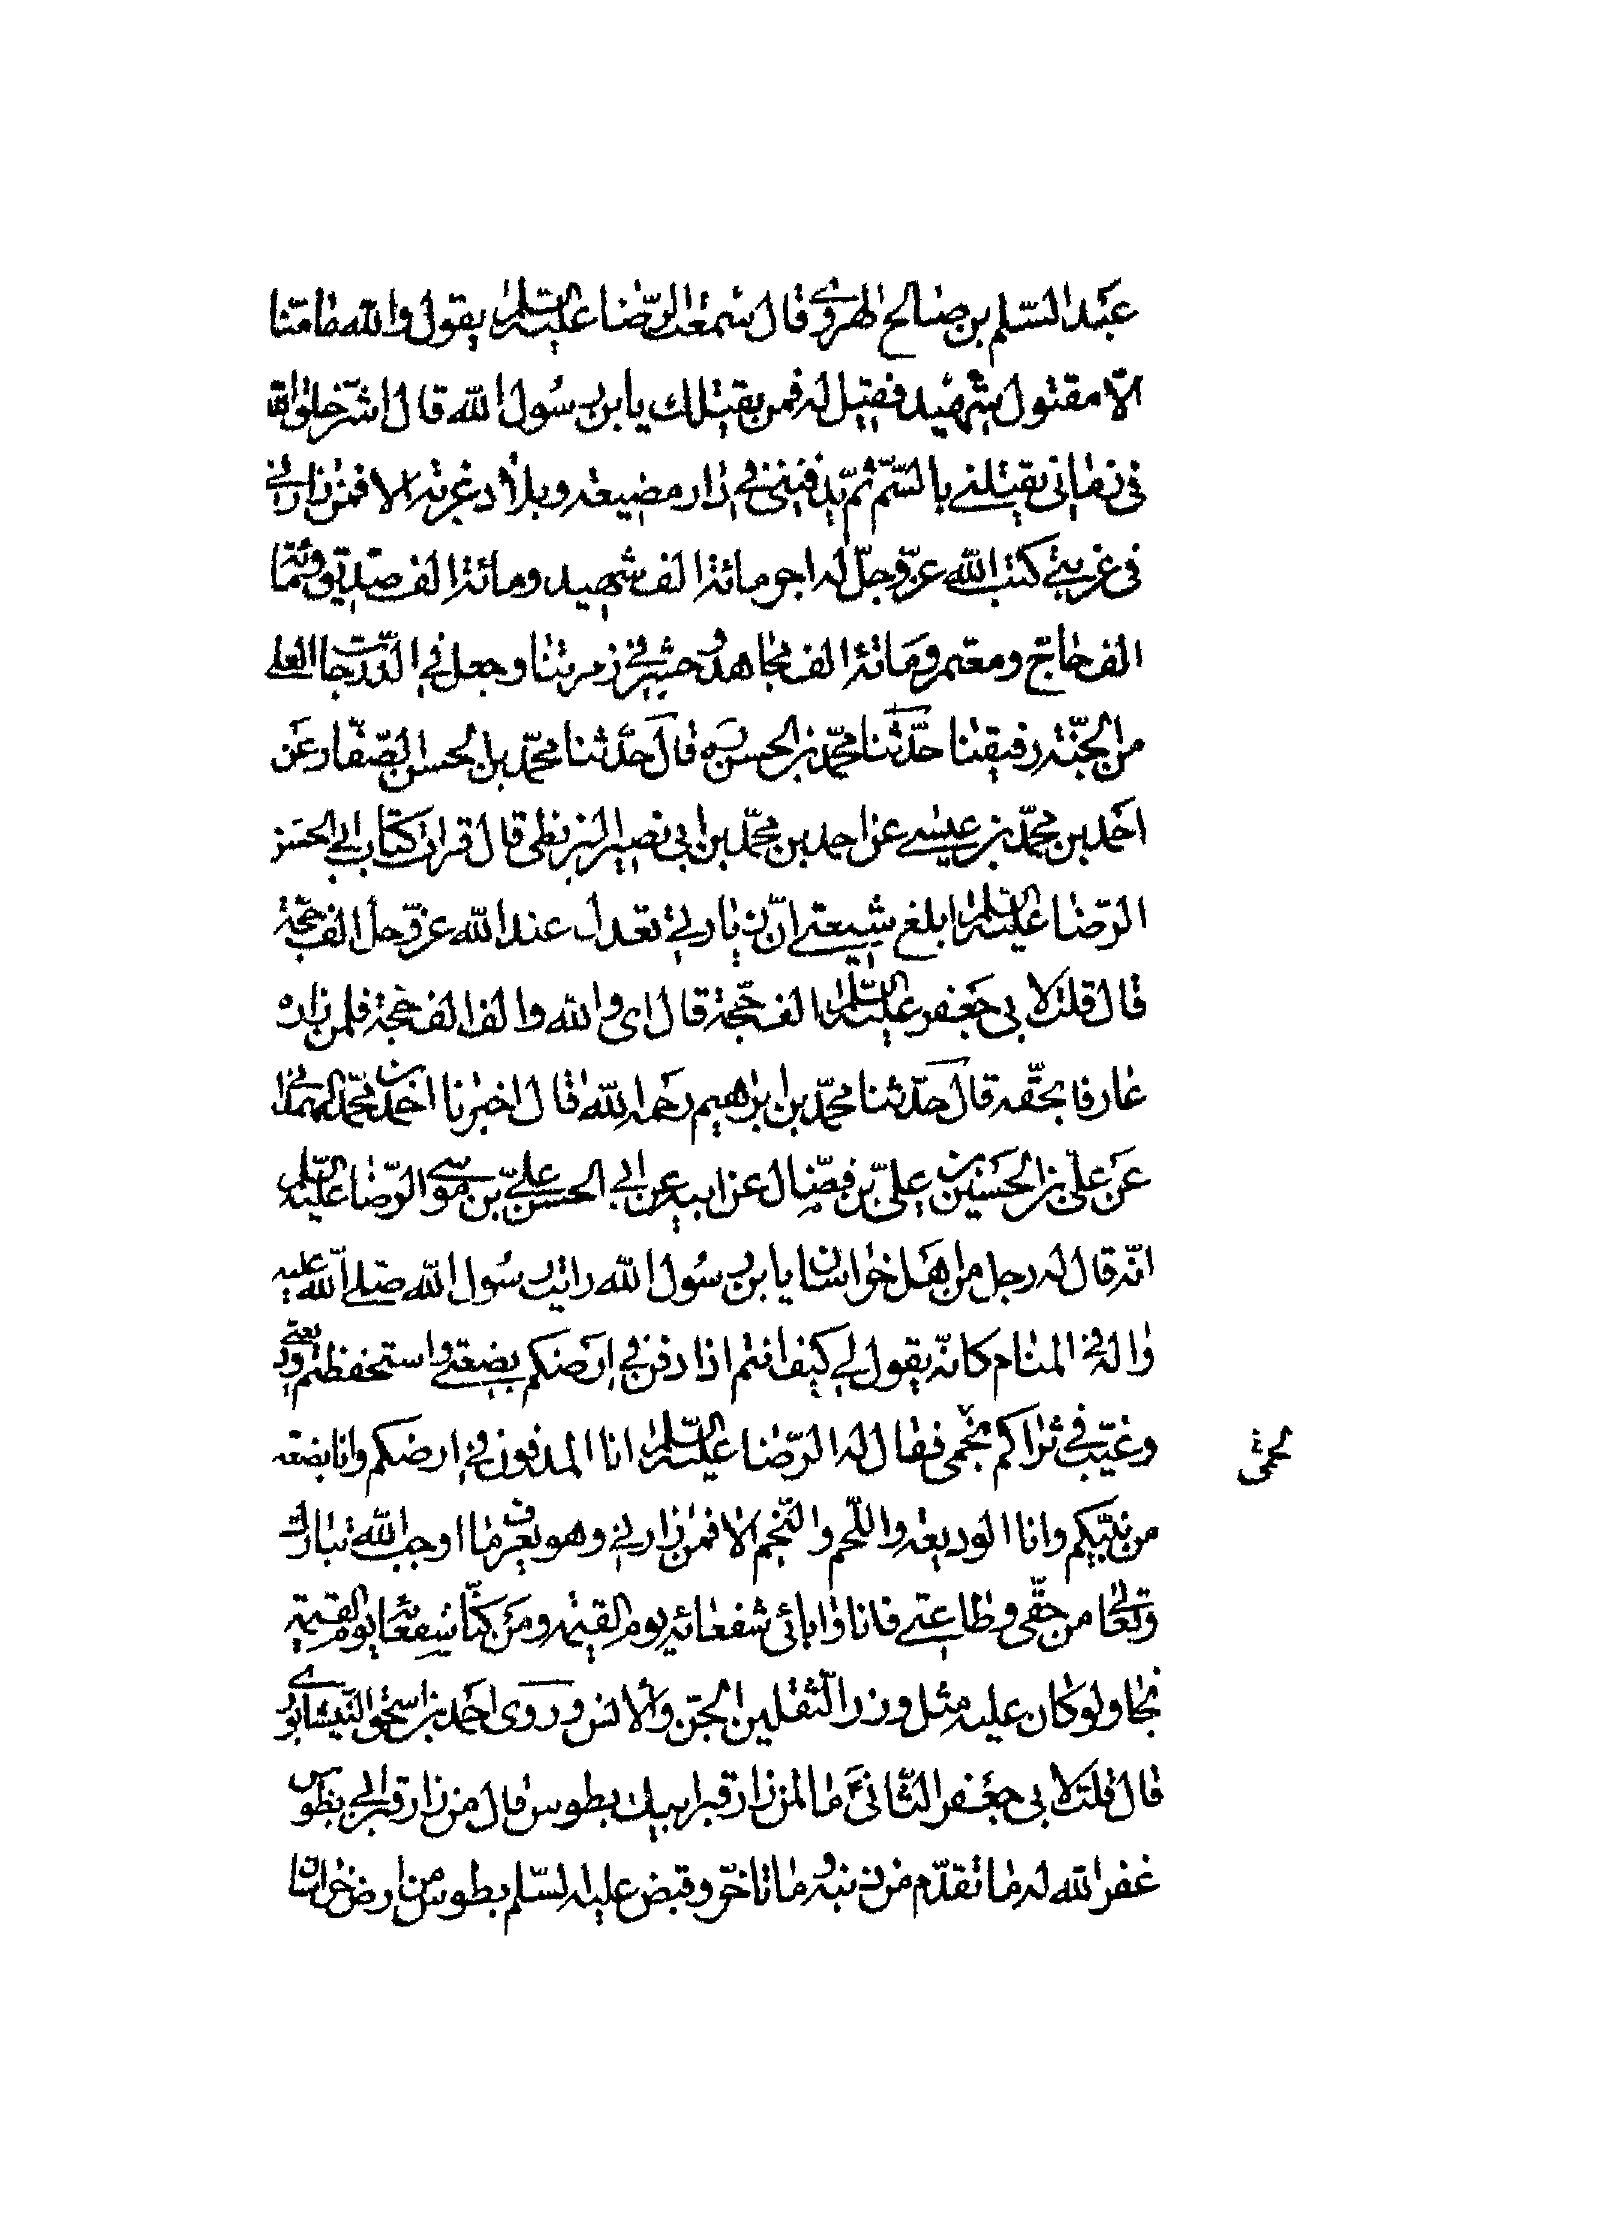 عبد السّلم بن صالح الهروى قال سمعت الرّضا عليه السّلم يقول والله ما منّا
الّا مقتول شهيد فقيل له فمن يقتلك يابن رسول الله قال اشرّ خلق الله
فى زمانى يقتلنى بالسّم ثمّ يدفننى فى دار مضيعة وبلاد غربة الا فمن زارنى
فى غربتى كتب الله عزّ وجلّ له اجر مائة الف شهيد ومائة الف صدّيق ومائة
الف حاجّ ومعتمر ومائة الف مجاهد وحشر فى زمرتنا وجعل فى الدّرجات العلى
من الجنّة رفيقنا حدّثنا محمّد بن الحسن ره قال حدّثنا محمّد بن الحسن الصّفار عن
احمد بن محمّد بن عيسى عن احمد بن محمّد بن ابى نصير البزنطى قال قرات كتاب ابى الحسن
الرّضا عليه السلم ابلغ شيعتى انّ زيارتى تعدل عند الله عزّ وجل الف حجّة
قال قلت لابى جعفر عليه السّلم الف حجّة قال اى والله والف الف حجة فلمن زاره
عارفا بحقّه قال حدّثنا محمّد بن ابرٰهيم رحمه الله قال اخبرنا احمد بن محمّد الهمدانى
عن علىّ بن الحسين بن علىّ بن فضّال عن ابيه عن ابى الحسن علىّ بن موسى الرّضا عليه السّلم
انّه قال له رجل من اهل خراسان يابن رسول الله رايت رسول الله صلى الله عليه
واله فى المنام كانّه يقول لى كيف انتم اذا دفن فى ارضكم بضعتى واستحفظتم وديعتى
وغيّب فى ثراكم نجمى فقال له الرّضا عليه السّلم انا المدفون فى ارضكم وانا بضعة
من نبيّكم وانا الوديعة واللّحم والنّجم الا فمن زارنى وهو يعرف ما اوجب الله تبارك
وتعالى من حقّى وطاعتى فانا وابائى شفعائه يوم القيمة ومن كنّا شفعائه يوم القيمة
نجا ولو كان عليه مثل وزر الثّقلين الجنّ والانس وروى احمد بن اسحق النّيشابورى
قال قلت لابى جعفر الثّانى ع ما لمن زار قبر ابيك بطوس قال من زار قبر ابى بطوس
غفر الله له ما تقدّم من ذنبه وما تاخّر وقبض عليه السّلم بطوس من ارض خراسان
لحمى